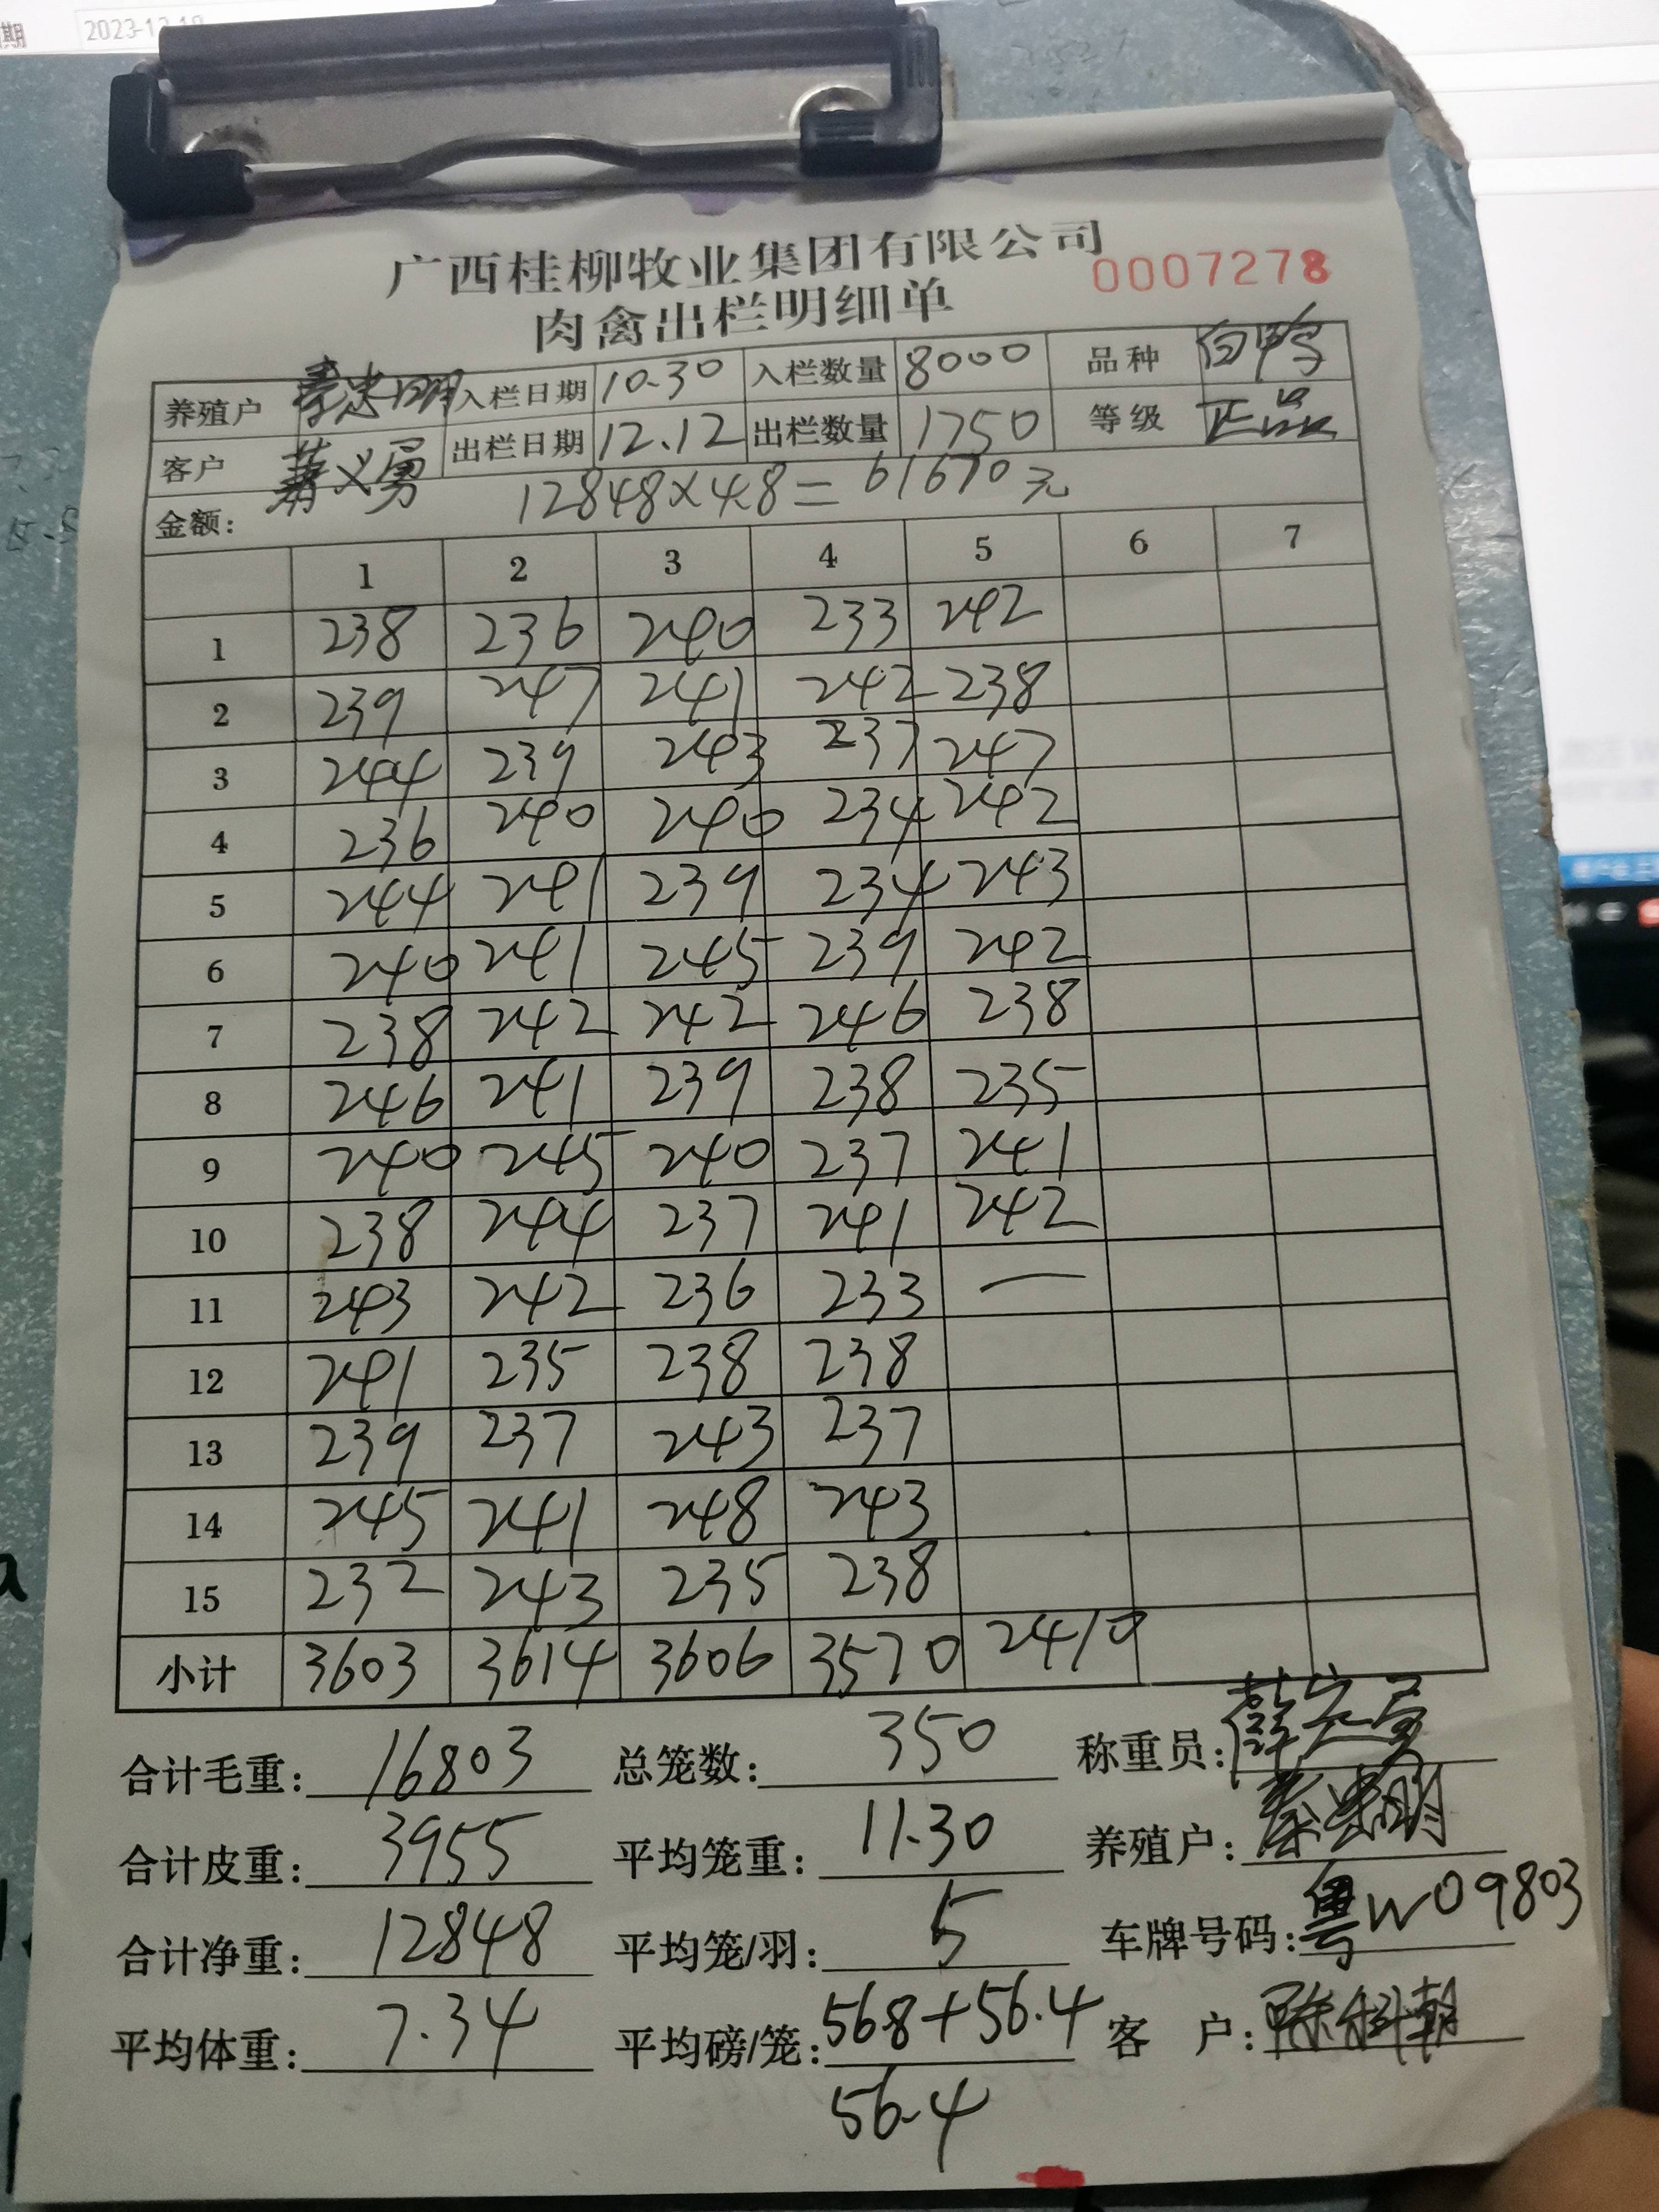 期 2023-12-19
广西桂柳牧业集团有限公司
0007278
肉禽出栏明细单
养殖户 秦忠明 入栏日期 10.30 入栏数量 8000 品种 白鸭
客户 蒋义勇 出栏日期 12.12 出栏数量 1750 等级 正品
金额: 12848×4.8=61670元
1 2 3 4 5 6 7
1 238 236 240 233 242
2 239 247 241 242 238
3 244 239 243 237 247
4 236 240 240 234 242
5 244 241 239 234 243
6 240 241 245 239 242
7 238 242 242 246 238
8 246 241 239 238 235
9 240 245 240 237 241
10 238 244 237 241 242
11 243 242 236 233 —
12 241 235 238 238
13 239 237 243 237
14 245 241 248 243
15 232 243 235 238
小计 3603 3614 3606 3570 2410
合计毛重: 16803 总笼数: 350 称重员:
合计皮重: 3955 平均笼重: 11.30 养殖户: 秦忠明
合计净重: 12848 平均笼/羽: 5 车牌号码: 粤W09803
平均体重: 7.34 平均磅/笼: 56.8+56.4 客 户:
56.4